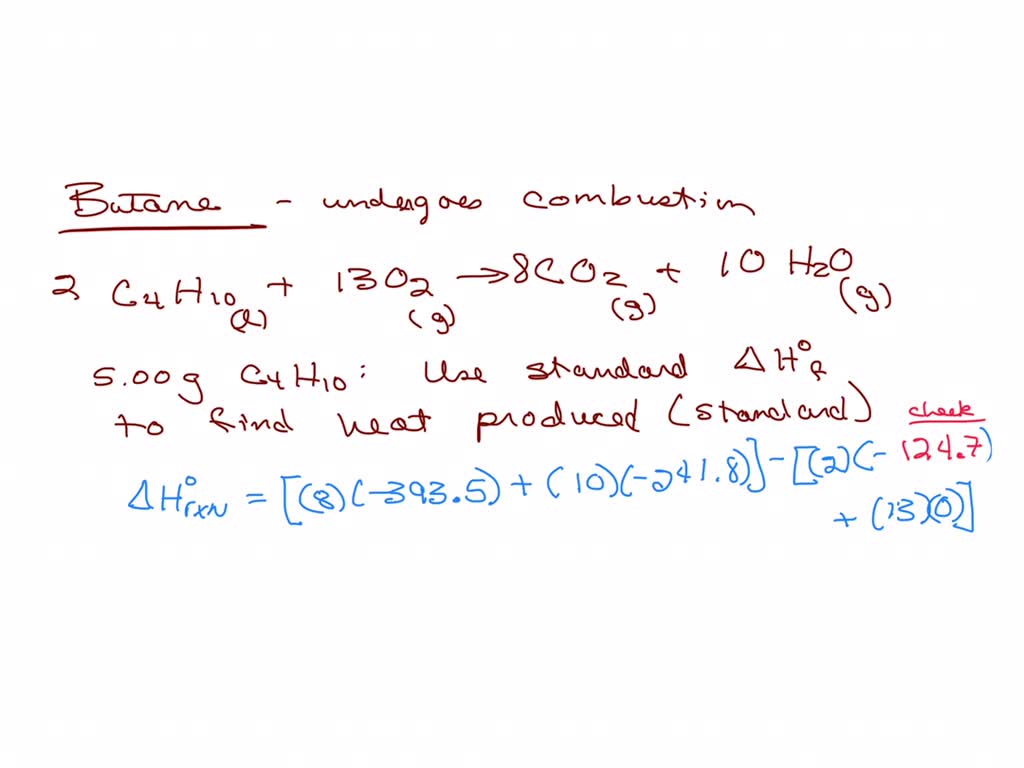 Butane - undergoes combustion
2 C4H10 (l) + 13O2 (g) → 8CO2 (g) + 10 H2O (g)
5.00g C4H10: Use standard ΔH°f
to find heat produced (standard)
check
ΔH°rxn = [(8)(-393.5) + (10)(-241.8)] - [(2)(-124.7)
+ (13)(0)]